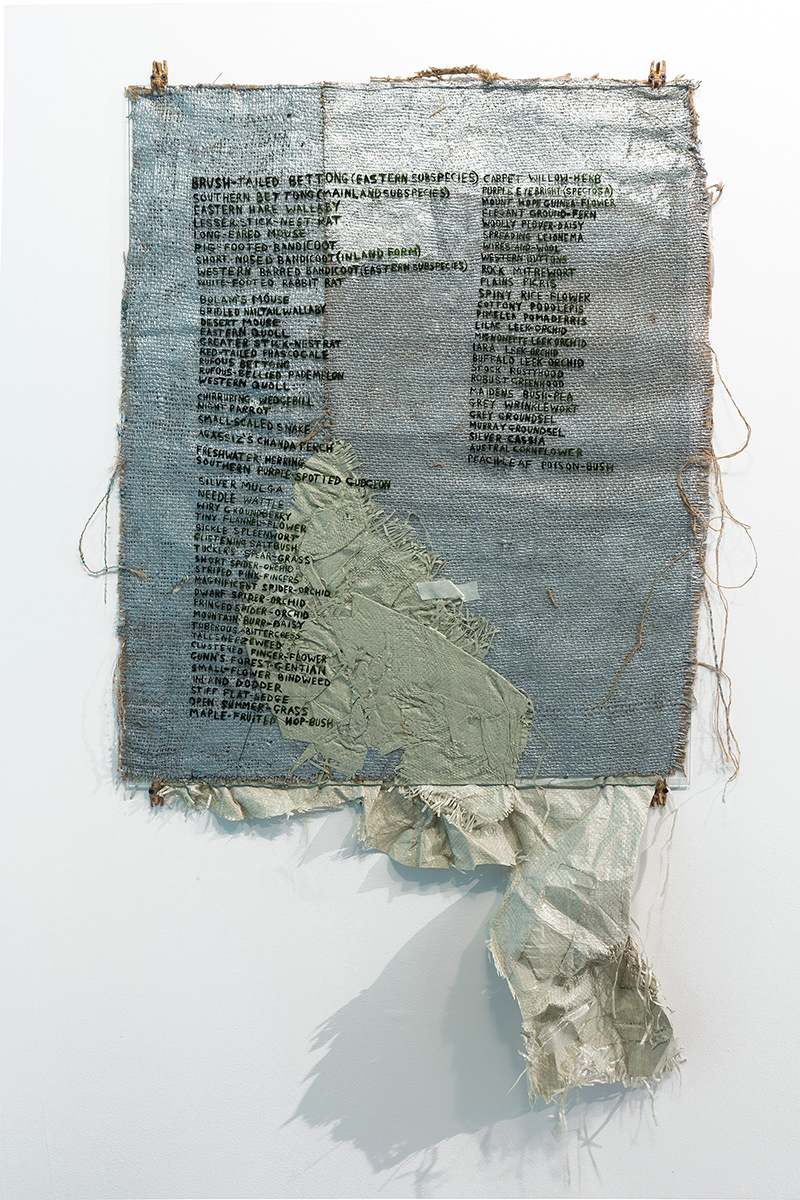 BRUSH-TAILED BETTONG (EASTERN SUBSPECIES)
SOUTHERN BETTONG (MAINLAND SUBSPECIES)
EASTERN HARE WALLABY
LESSER STICK-NEST RAT
LONG-EARED MOUSE
PIG-FOOTED BANDICOOT
SHORT-NOSED BANDICOOT (INLAND FORM)
WESTERN BARRED BANDICOOT (EASTERN SUBSPECIES)
WHITE-FOOTED RABBIT RAT
BOLAM'S MOUSE
BRIDLED NAILTAIL WALLABY
DESERT MOUSE
EASTERN QUOLL
GREATER STICK-NEST RAT
RED-TAILED PHASCOGALE
RUFOUS BETTONG
RUFOUS-BELLIED PADEMELON
WESTERN QUOLL
CHIRRUPING WEDGEBILL
NIGHT PARROT
SMALL-SCALED SNAKE
AGASSIZ'S CHANDA PERCH
FRESHWATER HERRING
SOUTHERN PURPLE-SPOTTED GUDGEON
SILVER MULGA
NEEDLE WATTLE
WIRY GROUNDBERRY
TINY FLANNEL-FLOWER
SICKLE SPLEENWORT
GLISTENING SALTBUSH
TUCKER'S SPEAR-GRASS
SHORT SPIDER-ORCHID
STRIPED PINK-FINGERS
MAGNIFICENT SPIDER-ORCHID
DWARF SPIDER-ORCHID
FRINGED SPIDER-ORCHID
MOUNTAIN BURR-DAISY
TUBEROUS BITTERCRESS
TALL SNEEZEWEED
CLUSTERED FINGER-FLOWER
GUNN'S FOREST-GENTIAN
SMALL-FLOWER BINDWEED
INLAND DODDER
STIFF FLAT-SEDGE
OPEN SUMMER-GRASS
MAPLE-FRUITED HOP-BUSH
CARPET WILLOW-HERB
PURPLE EYEBRIGHT (SPECIOSA)
MOUNT HOPE GUINEA-FLOWER
ELEGANT GROUND-FERN
WOOLLY PLOVER-DAISY
SPREADING LEIONEMA
WIRES-AND-WOOL
WESTERN BUTTONS
ROCK MITREWORT
PLAINS PICRIS
SPINY RICE-FLOWER
COTTONY PODOLEPIS
PIMELEA POMADERRIS
LILAC LEEK-ORCHID
MIGNONETTE LEEK-ORCHID
TARA LEEK-ORCHID
BUFFALO LEEK-ORCHID
RUSTYHOOD
ROBUST GREENHOOD
MAIDENS BUSH-PEA
GREY WRINKLEWORT
GREY GROUNDSEL
MURRAY GROUNDSEL
SILVER CASSIA
AUSTRAL CORNFLOWER
PEACH-LEAF POISON-BUSH